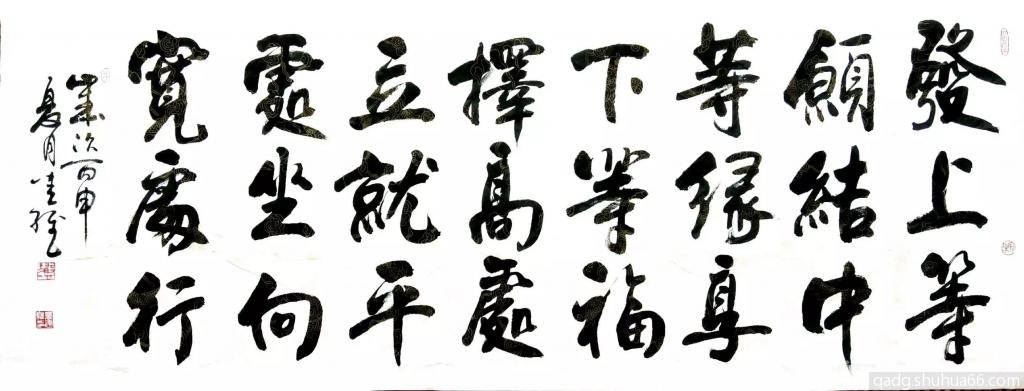 發上等
願結中
等緣享
下等福
擇高處
立就平
處坐向
寬處行
歲次丙申
夏月
qadg.shuhua66.com